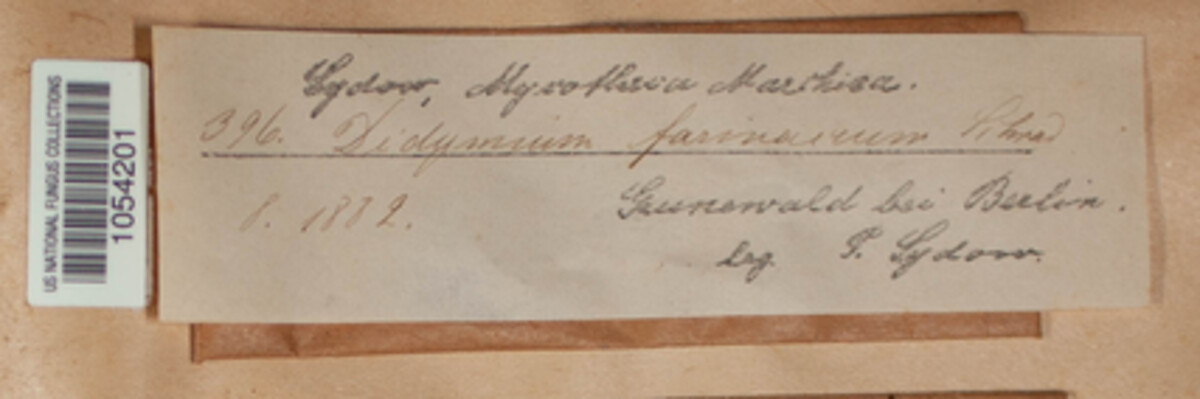 US NATIONAL FUNGUS COLLECTIONS
1054201
Sydow, Mycotheca Marchica.
396. Didymium farinaceum Schrad
8. 1882.
Grunewald bei Berlin.
leg. P. Sydow.